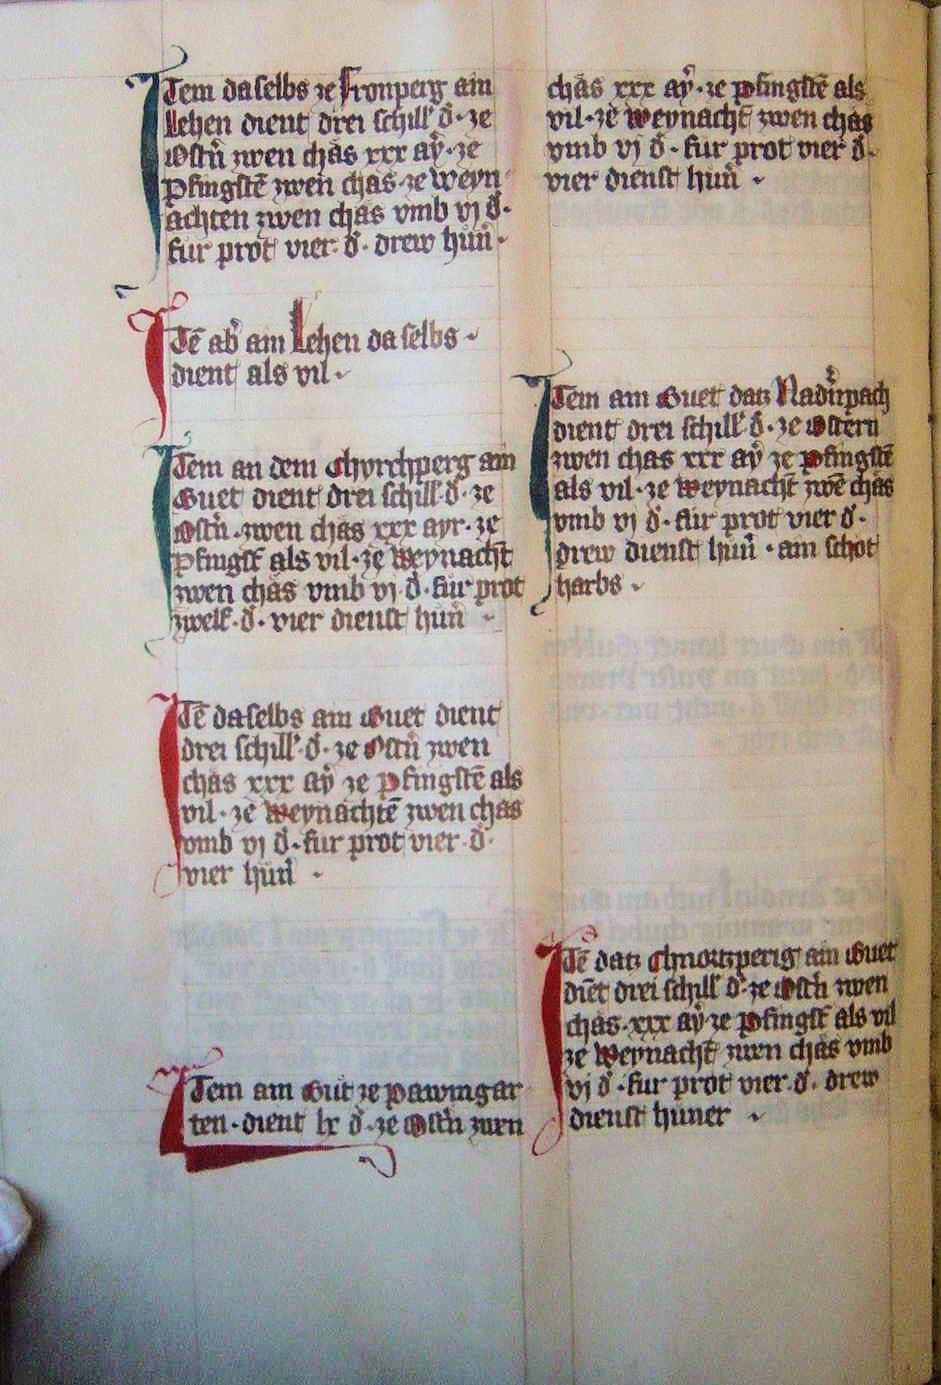 Item daselbs ze Fronperg am
Lehen dient drei schill d̄ · ze
Ostn̄ zwen chas xxx aӱ · ze
Pfingstē zwen chas · ze weyn
achten zwen chas vmb vj d̄ ·
fur prot vier · d̄ · drew hun̄ ·
Itē ab̄ am Lehen da selbs ·
dient als vil ·
Item an dem Chyrchperg am
Guet dient drei schill · d̄ · ze
Ostn̄ · zwen chas xxx ayr · ze
Pfingst̄ als vil · ze Weynacht̄
zwen chas vmb vj · d̄ · fur prot
zwelf · d̄ · vier dienst hun̄ ·
Itē daselbs am Guet dient
drei schill · d̄ · ze Ostn̄ zwen
chas xxx aӱ ze Pfingstē als
vil · ze Weynachtē zwen chas
vmb vj d̄ · fur prot vier · d̄ ·
vier hun̄ ·
Item am Gut ze pawmgar
ten · dient lx d̄ · ze Ostn̄ zwen
chas xxx aӱ · ze Pfingstē als
vil · ze Weynacht̄ zwen chas
vmb vj d̄ · fur prot vier d̄ ·
vier dienst hun̄ ·
Item am Guet datz Nadn̄pach
dient drei schill d̄ · ze Ostern
zwen chas xxx aӱ ze Pfingstē
als vil · ze Weynacht̄ zwē chas
vmb vj d̄ · fur prot vier d̄ ·
drew dienst hun̄ · am schot
harbs ·
Itē datz perig am Guet
diēt drei schill d̄ · ze Ostn̄ zwen
chas · xxx aӱ ze Pfingst̄ als vil
ze Weynacht̄ zwen chas vmb
vj d̄ · fur prot vier · d̄ · drew
dienst huner ·